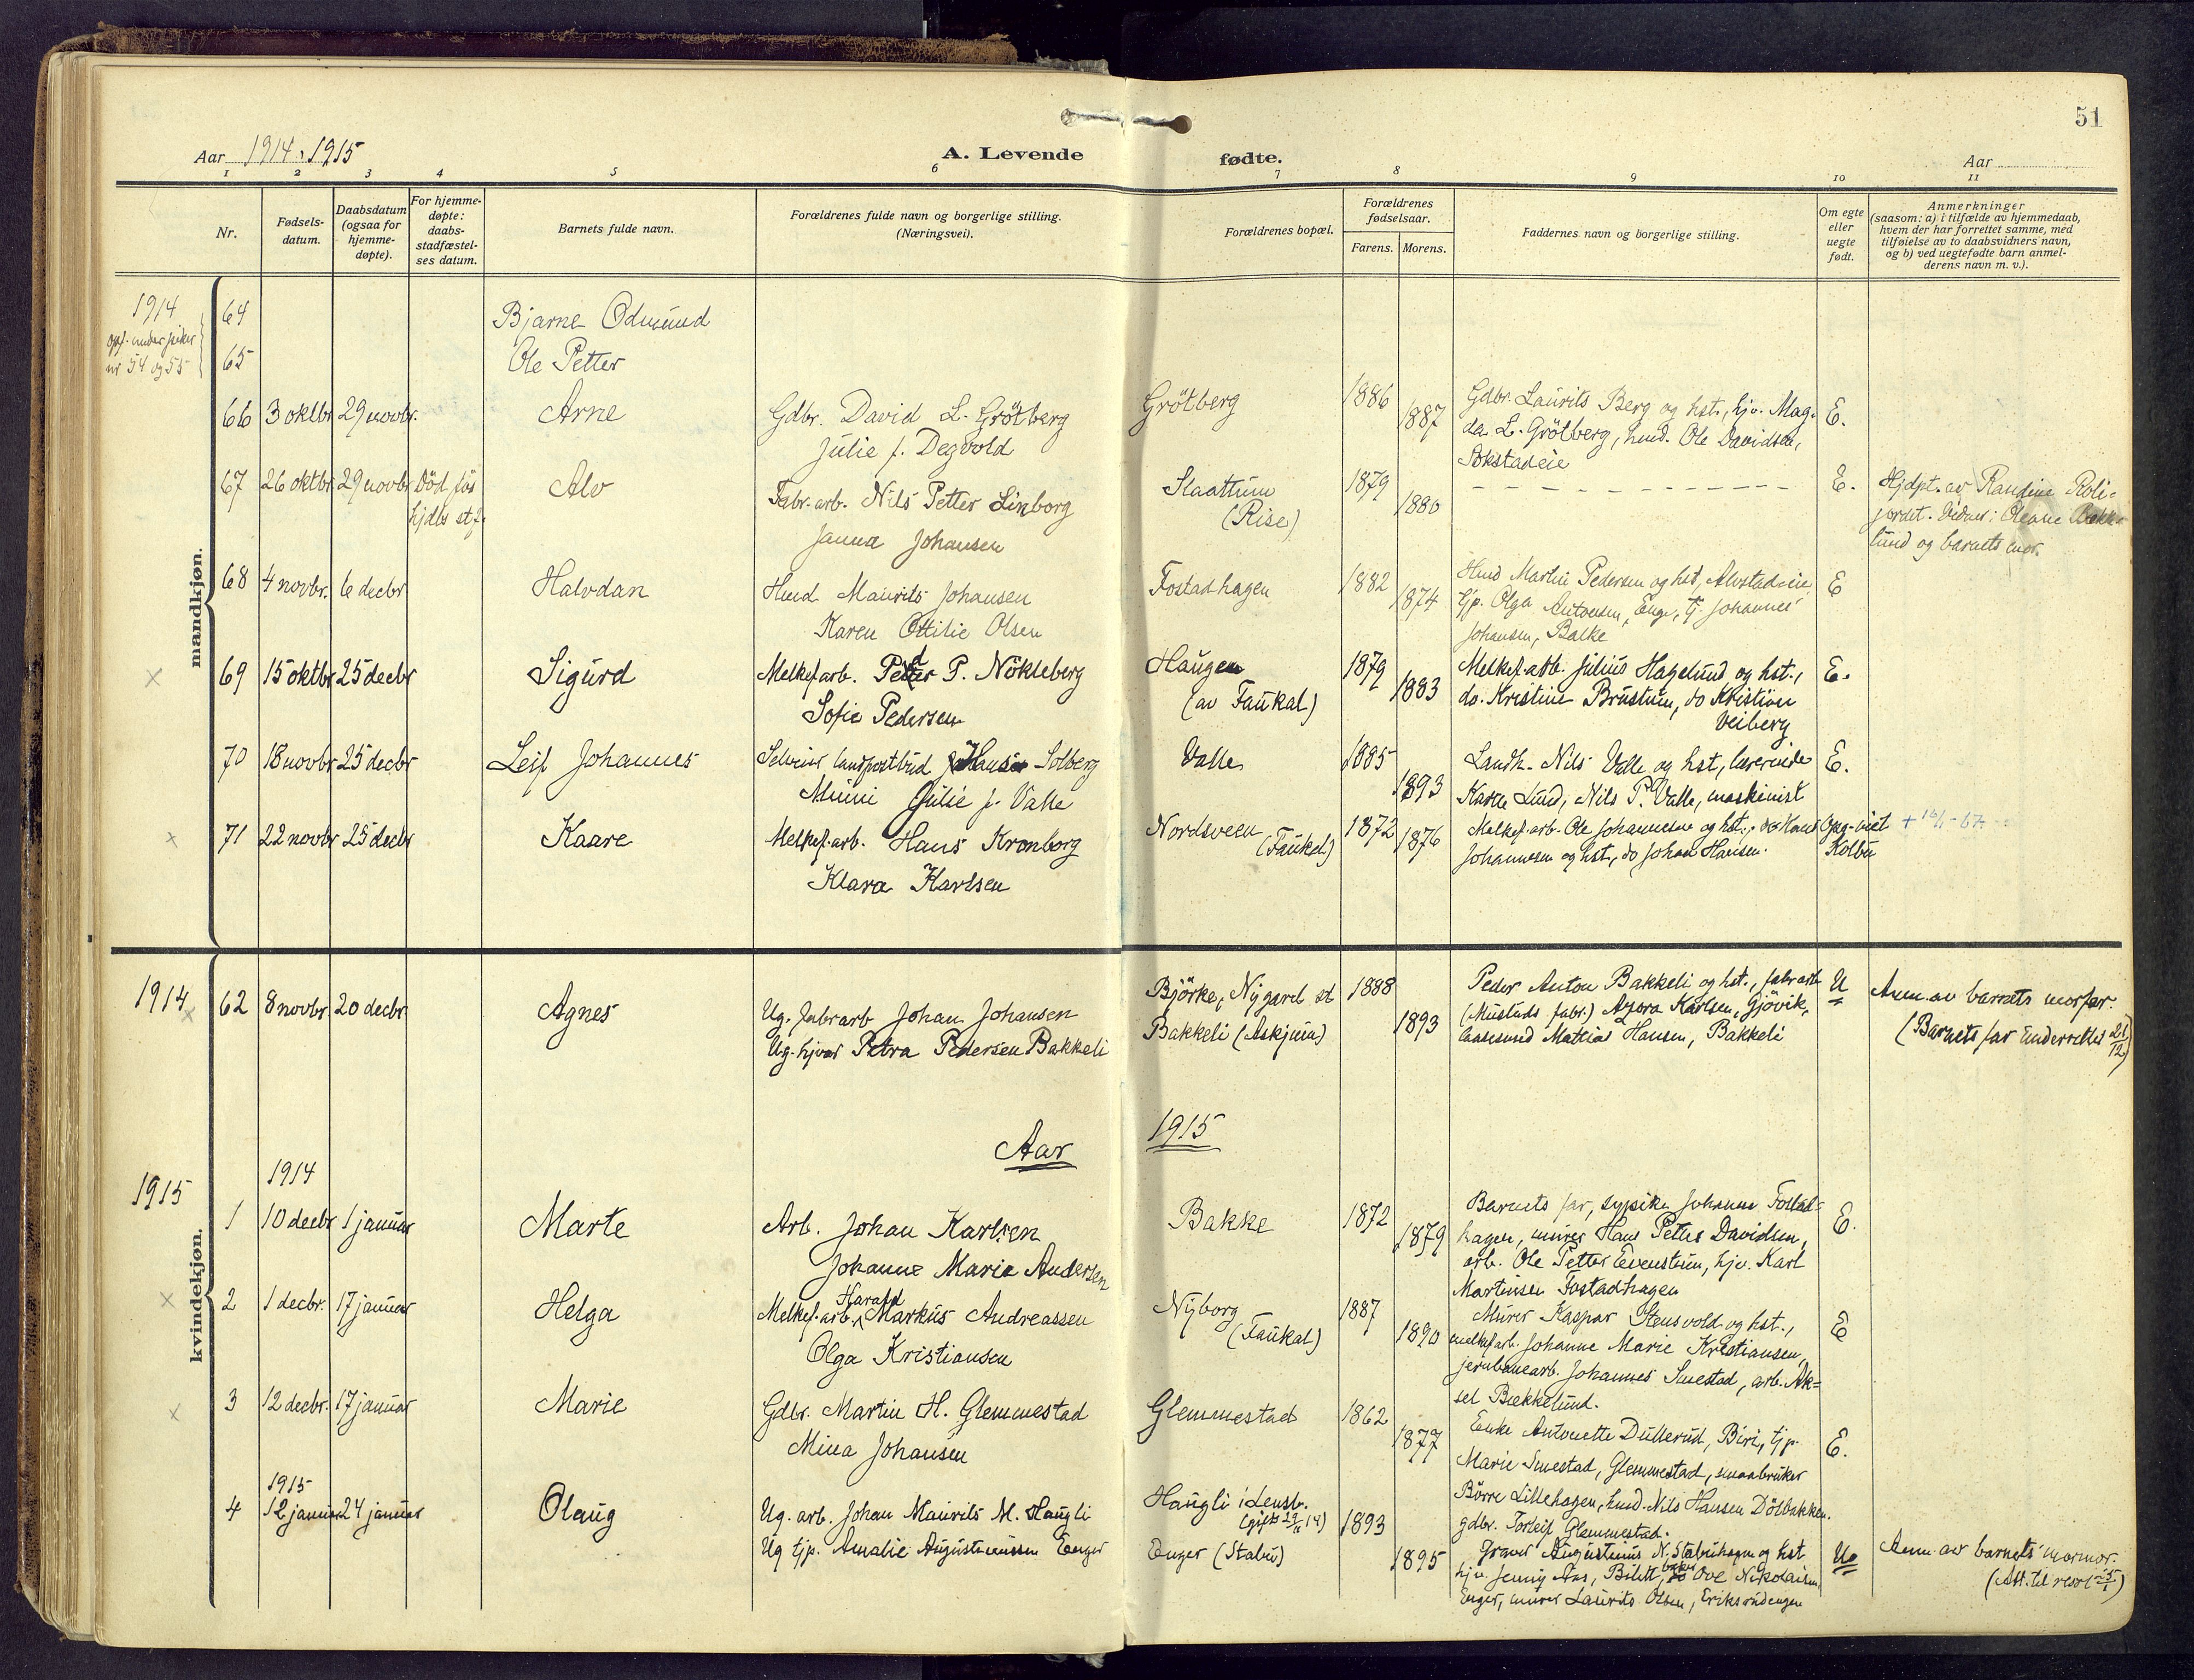 51
Aar 1914, 1915
A. Levende fødte.
Aar
1 2 3 4 5 6 7 8 9 10 11
Nr.
Fødsels-
datum.
Daabsdatum
(ogsaa for
hjemme-
døpte).
For hjemme-
døpte:
daabs-
stadfæstel-
ses datum.
Barnets fulde navn.
Forældrenes fulde navn og borgerlige stilling.
(Næringsvei).
Forældrenes bopæl.
Forældrenes
fødselsaar.
Farens. Morens.
Faddernes navn og borgerlige stilling.
Om egte
eller
uegte
født.
Anmerkninger
(saasom: a) i tilfælde av hjemmedaab,
hvem der har forrettet samme, med
tilføielse av to daabsvidners navn,
og b) ved uegtefødte barn anmel-
derens navn m. v.).
mandkjøn.
1914
opf. under piker
nr 54 og 55
64 Bjarne Odmund
65 Ole Petter
66 3 oktbr 29 novbr. Arne Gdbr. David L. Grötberg Grötberg 1886 Gdbr. Laurits Berg og hst., hjv. Mag-
Julie f. Degvold 1887 da L. Grötberg, hmd. Ole Davidsen, E.
Sokstadeie
67 26 oktbr 29 novbr Död før Alv Fabr. arb. Nils Petter Linborg Slaattum 1879 E. Hjdpt. av Randine Roli-
hjdbs stf. Janna Johansen (Rise) 1880 jordet. Vidner: Oleane Bækk-
lund og barnets mor.
68 4 novbr. 6 decbr Halvdan Hmd Maurits Johansen Fostadhagen 1882 Hmd Martin Pedersen og hst, Alvstadeie E
Karen Ottilie Olsen 1874 tjp. Olga Antonsen, Enge, tj. Johannes
Johansen, Balke
69 15 oktbr 25 decbr Sigurd Melkef.arb. Peder P. Nökleberg Haugen 1879 Melkef.arb. Julius Hagelund og hst., E.
Sofie Pedersen (av Faukal) 1883 do. Kristine Brustuen, do Kristian
Veiberg
70 18 novbr 25 decbr Leif Johannes landpostbud Hans Solberg Valle 1885 Landh. Nils Valle og hst, lærerinde E.
Minni Julie f. Valle 1893 Karen Lund, Nils P. Valle, maskinist
71 22 novbr 25 decbr Kaare Melkef.arb. Hans Kronborg Nordsveen 1872 Melkef.arb. Ole Johannesen og hst., do Hans
Klara Karlsen (Faukal) 1876 Johannesen og hst., do Johan Hansen. Kolbu
kvindekjøn.
1914 62 8 novbr 20 decbr Agnes Ug. fabrarb Johan Johansen Björke, Nygard st 1888 Peder Anton Bakkeli og hst., fabrarb U Anm. av barnets morfar.
Ug. hjvar Petra Pedersen Bakkeli Bakkeli (Askjum) 1893 (Mustads fabr.) Azora Karlsen, Gjövik, (Barnets far underrettet 21/12)
Mathias Hansen, Bakkeli
Aar 1915
1915 1914
1 10 decbr 1 januar Marte Arb. Johan Karlsen Bakke 1872 Barnets far, sypike Johanne Fostad- E.
Johanne Marie Andersen 1879 hagen, murer Hans Petter Davidsen,
arb. Ole Petter Evenstuen, hjv. Karl
Martinsen Fostadhagen
2 1 decbr. 17 januar Helga Melkef.arb. Harald Markus Andreassen Nyborg 1887 Murer Kaspar Stensvold og hst., E
Olga Kristiansen (Faukal) 1890 melkef.arb. Johanne Marie Kristiansen,
jernbanearb. Johannes Smestad, arb. Ak-
sel Bækkelund.
3 12 decbr. 17 januar Marie Gdbr. Martin H. Glemmestad Glemmestad 1862 Enke Antonette Dullerud, Biri, tjp. E.
Mina Johansen 1877 Marie Smestad, Glemmestad, smaabruker
Börre Lillehagen, hmd. Nils Hansen Dölbakken.
gdbr. Torleif Glemmestad.
1915
4 12 januar 24 januar Olaug Ug. arb. Johan Maurits M. Haugli Haugli i Lensb. 1893 Graver Augustinus N. Stabuhagen og hst
Ug tjp. Amalie Augustinussen Enger Enger (Stabu) 1895 hjv. Jenny Aas, Bilitt, Ove Nikolaisen Ue Anm. av barnets mormor.
Enger, murer Laurits Olsen, Eriksrudengen